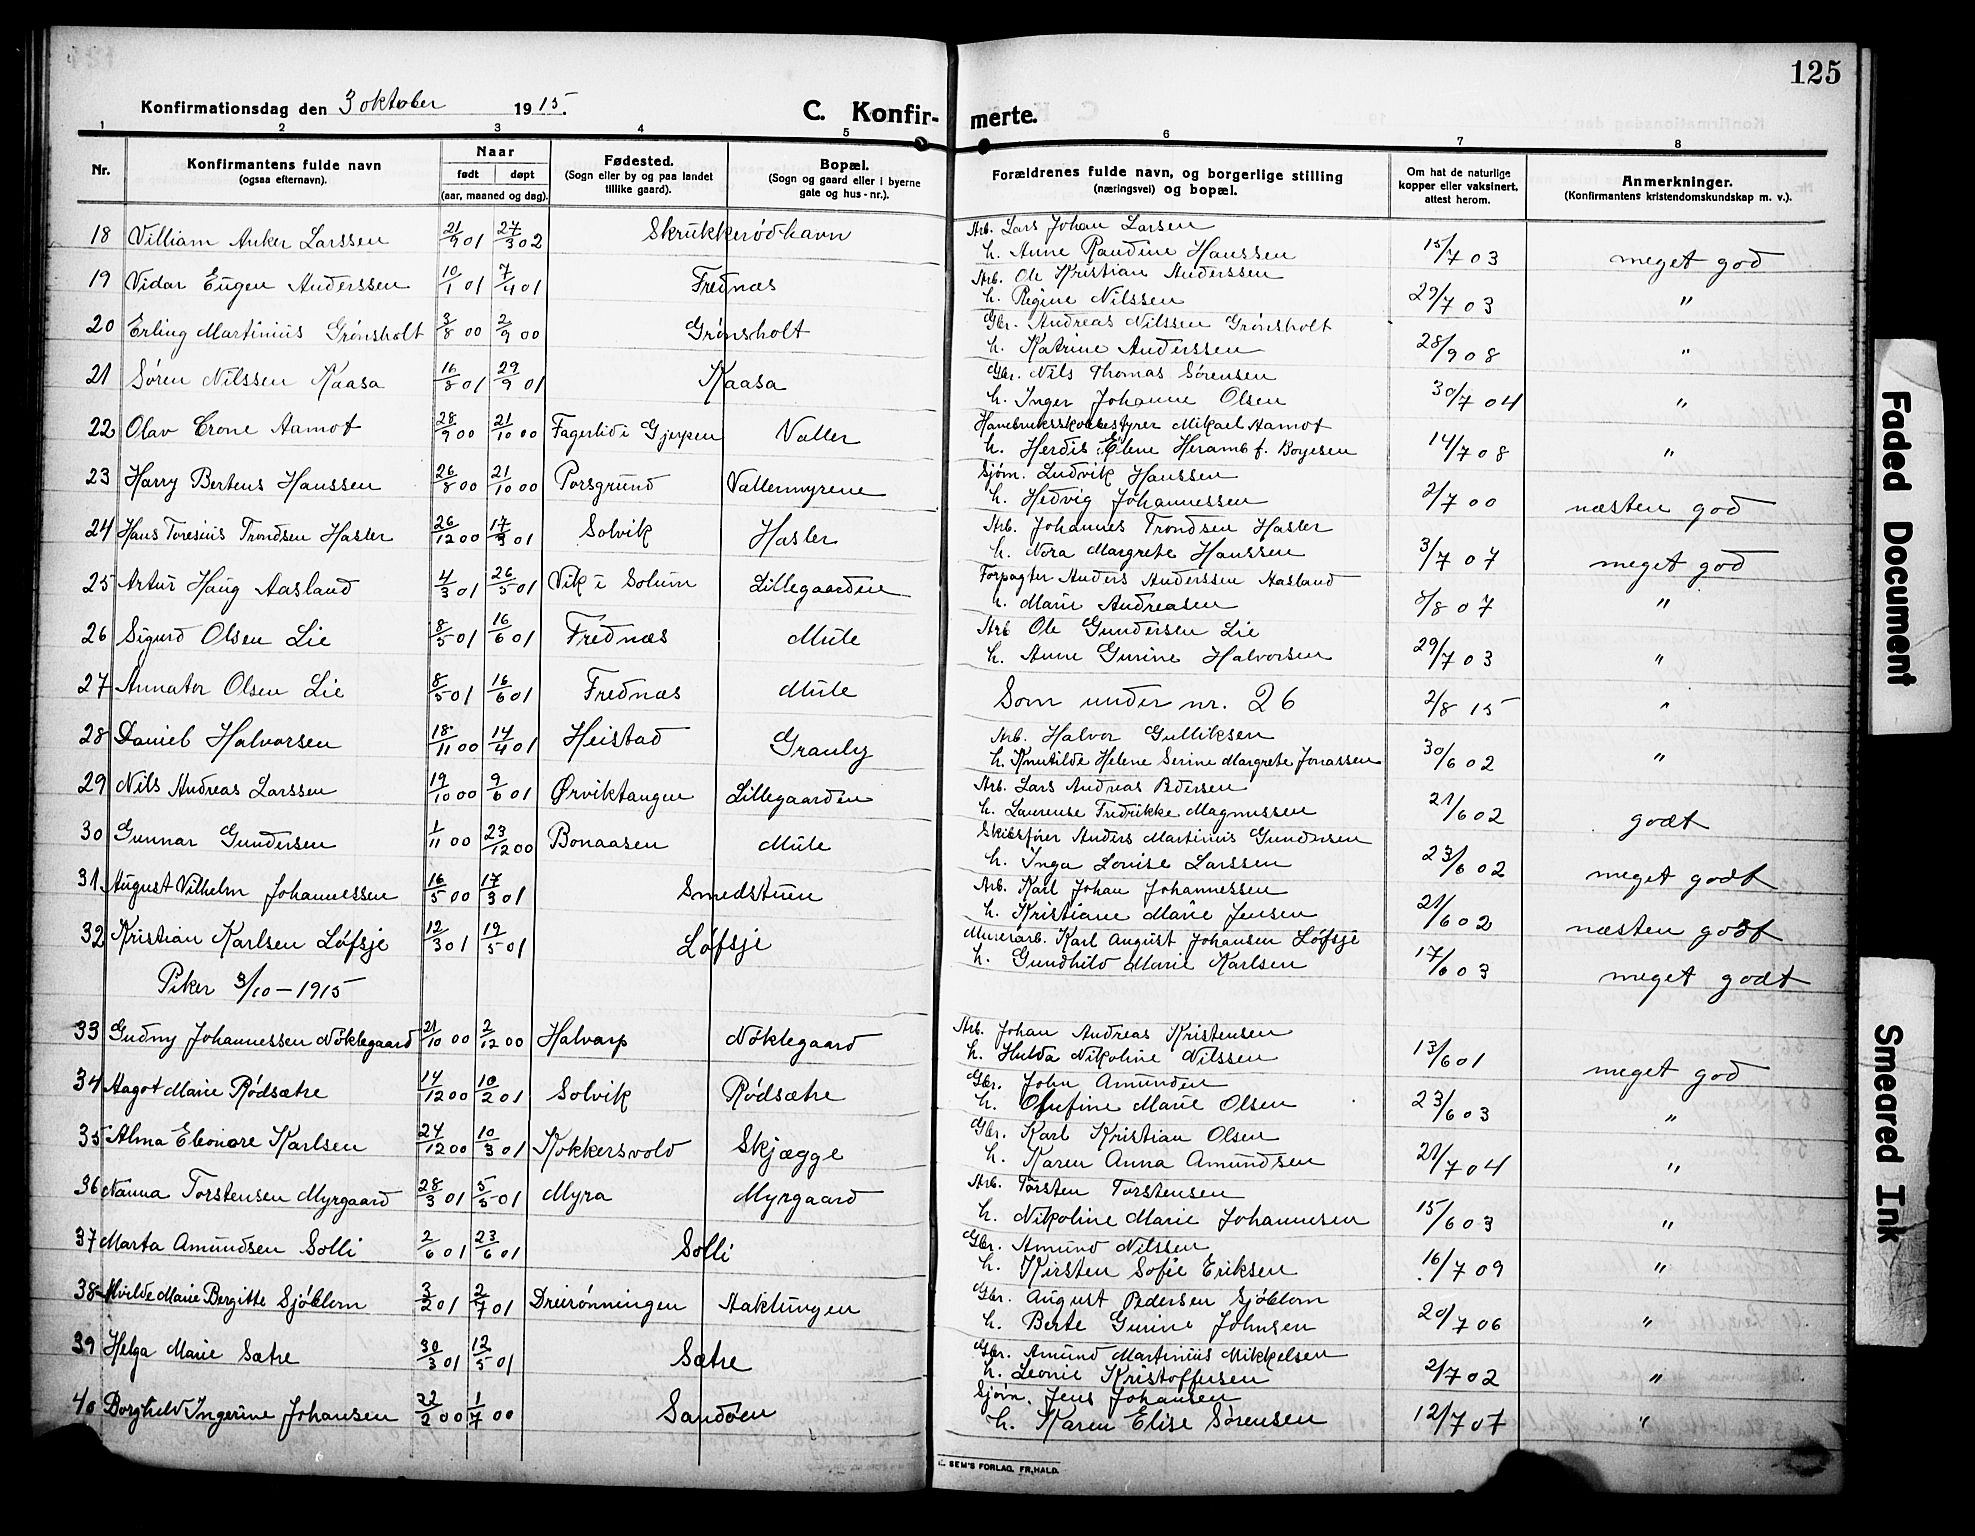 125
Konfirmationsdag den 3 oktober 1915.
C. Konfir- merte.
1 2 3 4 5 6 7 8
Nr.
Konfirmantens fulde navn
(ogsaa efternavn).
Naar
født døpt
(aar, maaned og dag).
Fødested.
(Sogn eller by og paa landet
tillike gaard).
Bopæl.
(Sogn og gaard eller i byerne
gate og hus-nr.).
Forældrenes fulde navn, og borgerlige stilling
(næringsvei) og bopæl.
Om hat de naturlige
kopper eller vaksinert,
attest herom.
Anmerkninger.
(Konfirmantens kristendomskundskap m. v.).
18 Villiam Anker Larssen 21/9 01 27/3 02 Skrukkerødhavn Arb. Lars Johan Larsen
h. Anne Randine Hanssen 15/7 03 meget god
19 Vidar Eugen Anderssen 10/1 01 7/4 01 Frednæs Arb. Ole Kristian Anderssen
h. Regine Nilssen 29/7 03 "
20 Erling Martinius Grønsholt 3/8 00 2/9 00 Grønsholt Gbr. Andreas Nilssen Grønsholt
h. Katrine Anderssen 28/9 08 "
21 Søren Nilssen Kaasa 16/8 01 29/9 01 Kaasa Gbr. Nils Thomas Sørensen
h. Inger Johanne Olsen 30/7 04 "
22 Olav Crone Aamot 28/9 00 21/10 00 Fagerlid i Gjerpen Valler Havebruksskolebestyrer Mikael Aamot
h. Herdis Elene Heramb f. Boyesen 14/7 08 "
23 Harry Bertens Hanssen 26/8 00 21/10 00 Porsgrund Vallermyrene Sjøm. Ludvik Hanssen
h. Hedvig Johannessen 2/7 00 næsten god
24 Hans Toresius Trondsen Hasler 26/12 00 17/3 01 Solvik Hasler Arb. Johannes Trondsen Hasler
h. Nora Margrete Hanssen 3/7 07 meget god
25 Artur Haug Aasland 4/3 01 26/5 01 Vik i Solum Lillegaarden Forpagter Anders Anderssen Aasland
h. Marie Andreasen /8 07 "
26 Sigurd Olsen Lie 8/5 01 16/6 01 Frednæs Mule Arb Ole Gundersen Lie
h. Anne Gurine Halvorsen 29/7 03 "
27 Annator Olsen Lie 8/5 01 16/6 01 Frednæs Mule Som under nr. 26 2/8 15 "
28 Daniel Halvorsen 18/11 00 14/4 01 Heistad Granly Arb. Halvor Gulliksen
h. Knutilde Helene Serine Margrete Jonassen 30/6 02 "
29 Nils Andreas Larssen 19/10 00 9/6 01 Ørviktangen Lillegaarden Arb. Lars Andreas Pedersen
h. Laurense Fredrikke Magnussen 21/6 02 godt
30 Gunnar Gundersen 1/11 00 23/12 00 Bonaasen Mule Skibsfører Anders Martinius Gundersen
h. Inga Louise Larssen 23/6 02 meget godt
31 August Vilhelm Johannessen 16/5 00 17/3 01 Smedstuen Arb. Karl Johan Johannessen
h. Kristiane Marie Jensen 21/6 02 næsten godt
32 Kristian Karlsen Løfsje 12/3 01 19/5 01 Løfsje Murerarb. Karl August Johansen Løfsje
h. Gundhild Marie Karlsen 17/6 03 meget godt
Piker 3/10 - 1915
33 Gudny Johannessen Nöklegaard 21/10 00 2/12 00 Halvarp Nöklegaard Arb. Johan Andreas Kristensen
h. Hulda Nikoline Nilssen 13/6 01 meget god
34 Aagot Marie Rödsætre 14/12 00 10/2 01 Solvik Rödsætre Gbr. John Amundsen
h. Olufine Marie Olsen 23/6 03 "
35 Alma Eleonore Karlsen 24/12 00 10/3 01 Kokkersvold Skjægge Gbr. Karl Kristian Olsen
h. Karen Anna Amundsen 21/7 04 "
36 Nanna Torstensen Myrgaard 28/3 01 5/5 01 Myra Myrgaard Arb. Torsten Torstensen
h. Nikoline Marie Johannesen 15/6 03 "
37 Marta Amundsen Solli 2/6 01 23/6 01 Solli Gbr. Amund Nilssen
h. Kirsten Sofie Eriksen 16/7 09 "
38 Alvilde Marie Bergitte Sjöblom 3/2 01 2/7 01 Dreirönningen Aaklungen Gbr. August Pedersen Sjöblom
h. Berte Gurine Johnsen 20/7 06 "
39 Helga Marie Sætre 30/3 01 12/5 01 Sætre Gbr. Amund Martinius Mikkelsen
h. Leonie Kristoffersen 2/7 02 "
40 Borghild Ingerine Johansen 22/2 00 1/7 00 Sandöen Sjøm. Jens Johansen
h. Karen Elise Sørensen 12/7 07 "
SEM'S FORLAG, FR.HALD.
Faded Document
Smeared Ink